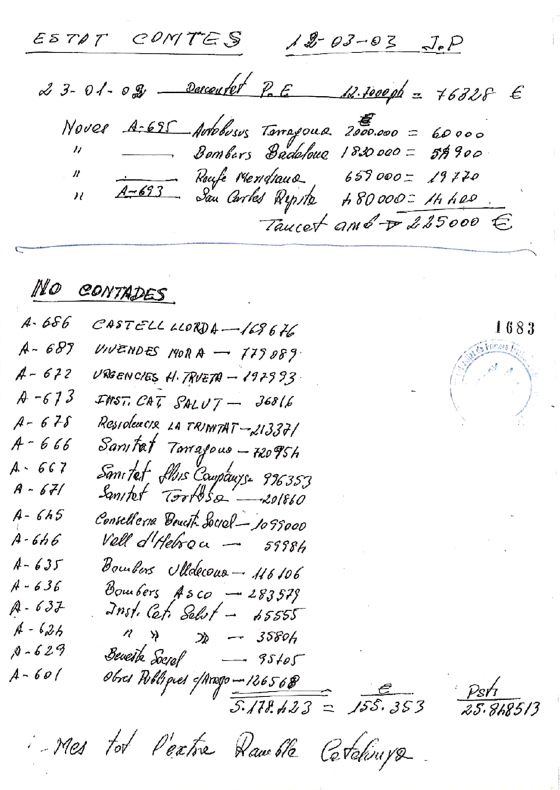 ESTAT COMTES 12-03-03 J.P
23-01-02 Descontat P.E 12.7000ph = 76328 €
Noves A-695 Autobusus Tarragona 2000.000 = 60000 €
" Bombers Badalona 1830000 = 54900
" Renfe Meridiana 659000 = 19770
" A-693 San Carles Rapita 480000 = 14400
Tancat amb → 225000 €
NO CONTADES
1683
A-686 CASTELL LLORDA — 168676
A-689 VIVENDES MORA — 779089
A-672 URGENCIES H. TRUETA — 197993
A-673 INST. CAT SALUT — 36816
A-678 Residencia LA TRINITAT — 213371
A-666 Sanitat Tarragona — 720954
A-667 Sanitat Lluis Companys — 996353
A-671 Sanitat Tortosa — 201860
A-645 Conselleria Benest. Social — 1099000
A-646 Vall d'Hebron — 59984
A-635 Bombers Ulldecona — 116106
A-636 Bombers Asco — 283579
A-637 Inst. Cat. Salut — 45555
A-624 " " " — 35804
A-629 Beneste Social — 95405
A-601 Obres Publiques c/Arago — 126568
5.178.423 = € 155.353 Pst. 25.848513
- Mes tot l'extra Rambla Catalunya.